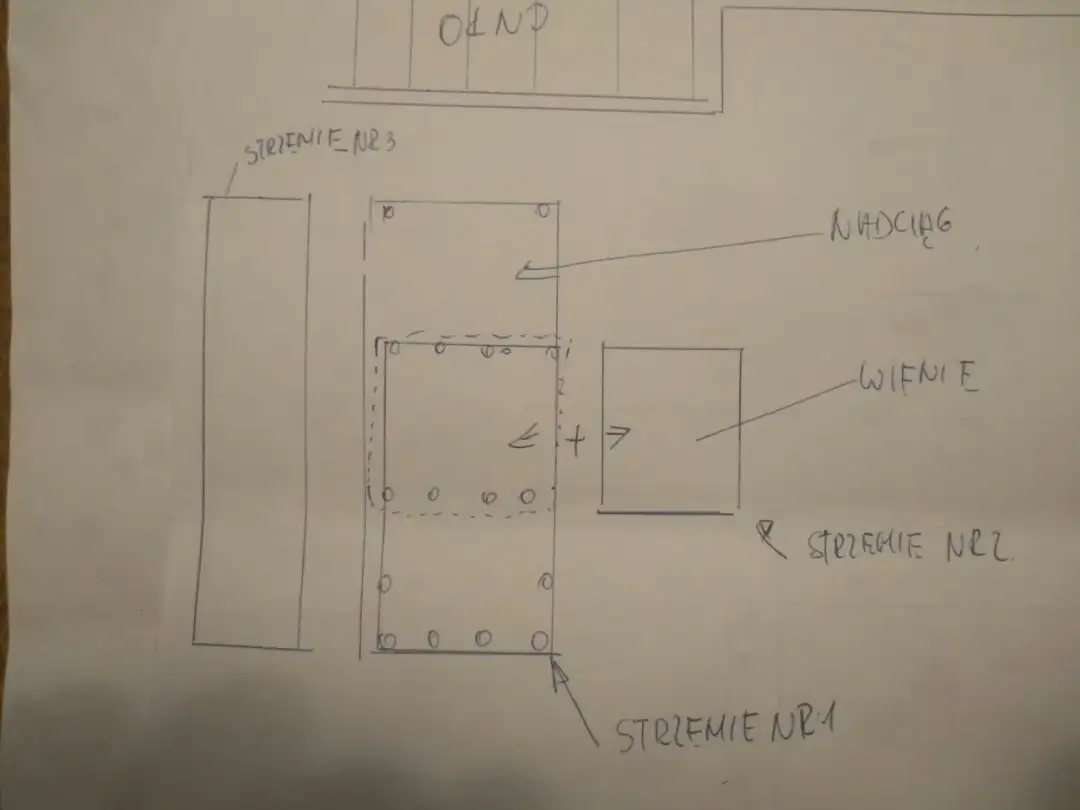 OKNO
STRZEMIE NR3
NADCIĄG
WIENIE
STRZEMIE NR2
STRZEMIE NR1